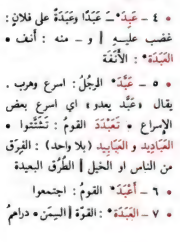 • ٤ - عَبِدَ َ عَبَدًا وعَبَدَةً على فلانٍ :
غضب عليه | و - منه : أنف •
العَبَدَة : الأَنَفَة
• ٥ - عَبَّدَ الرجلُ : اسرع وهرب .
يقال «عَبَّد يعدو» اي اسرع بعض
الإسراع • تَعَبْدَدَ القومُ : تَشَتَّتوا •
العَبَاديد و العَبَابيد (بلا واحد) : الفِرَق
من الناس او الخيل | الطُرُق البعيدة
• ٦ - أَعْبَدَ القومُ : اجتمعوا
• ٧ - العَبَدَة : القوّة | السِمَن • دراهمُ